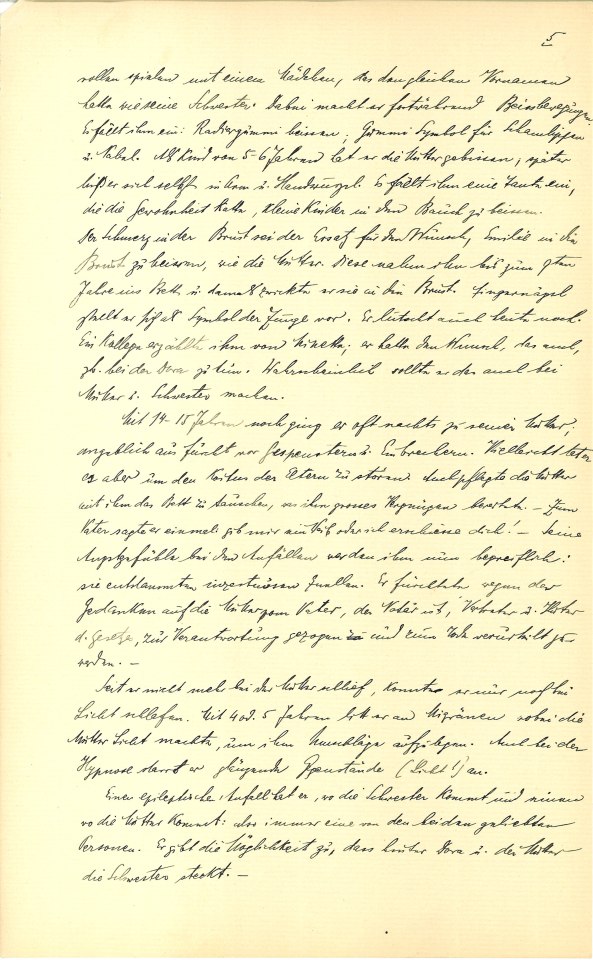 5
wollen spielen mit einem Mädchen, das den gleichen Vornamen
hatte wie seine Schwester. Dabei macht er fortwährend Beissbewegungen.
Es fällt ihm ein: Radiergummi beissen; Gummi Symbol für Schamlippen
u. Nabel. Als Kind von 5-6 Jahren hat er die Mutter gebissen, später
biss er sich selbst in Arm u. Handmuskel. Es fällt ihm eine Tante ein,
die die Gewohnheit hatte, kleine Kinder in den Bauch zu beissen.
Der Schmerz in der Brust sei der Ersatz für den Wunsch, Emilie in die
Brust zu beissen, wie die Mutter. Diese nahm ihn bis zum 9ten
Jahre ins Bett u. damals zwickte er sie in die Brust. Fingernägel
stellt er sich als Symbol der Zunge vor. Er lutscht auch heute noch.
Ein Kollege erzählte ihm von Minette, er hatte den Wunsch, das auch,
zb. bei der Dora zu tun. Wahrscheinlich sollte er das auch bei
Mutter u. Schwester machen.
Mit 14-15 Jahren noch ging er oft nachts zu seiner Mutter,
angeblich aus Furcht vor Gespenstern u. Einbrechern. Vielleicht tat er
es aber um den Koitus der Eltern zu stören. Auch pflegte die Mutter
mit ihm das Bett zu tauschen, was ihm grosses Vergnügen bereitete. - Zum
Vater sagte er einmal: gib mir ein oder ich erschiesse dich! - Seine
Angstgefühle bei den Anfällen werden ihm nun begreiflich:
sie entstammten inzestuösen Quellen. Er fürchtete wegen der
Gedanken auf die Mutter vom Vater, der Notar ist, Vertreter u. Hüter
d. Gesetze, zur Verantwortung gezogen und zum Tode verurteilt zu
werden. -
Seit er nicht mehr bei der Mutter schlief, konnte er nur noch bei
Licht schlafen. Mit 4 od. 5 Jahren litt er an Migränen wobei die
Mutter Licht machte, um ihm Umschläge aufzulegen. Auch bei der
Hypnose starrt er glänzende Gegenstände (Licht!) an.
Einen epileptische Anfall hat er, wo die Schwester kommt, und einen
wo die Mutter kommt: also immer eine von den beiden geliebten
Personen. Er gibt die Möglichkeit zu, dass hinter Dora u. der Mutter
die Schwester steckt. -